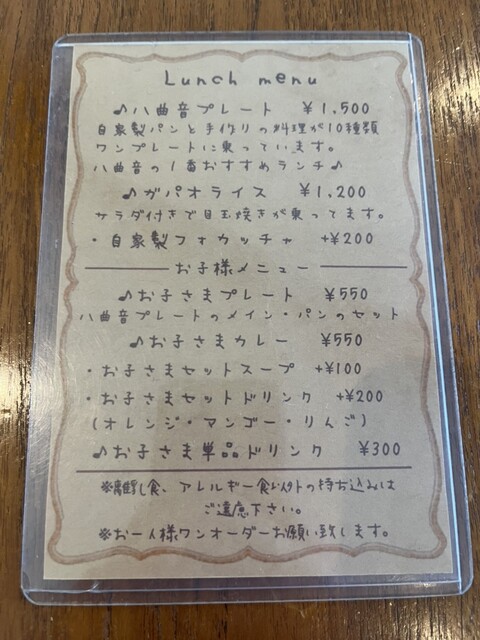 Lunch menu
♪八曲音プレート ¥1,500
自家製パンと手作りの料理が10種類
ワンプレートに乗っています。
八曲音の1番おすすめランチ♪
♪ガパオライス ¥1,200
サラダ付きで目玉焼きが乗ってます。
・自家製フォカッチャ +¥200
お子様メニュー
♪お子さまプレート ¥550
八曲音プレートのメイン・パンのセット
♪お子さまカレー ¥550
・お子さまセットスープ +¥100
・お子さまセットドリンク +¥200
(オレンジ・マンゴー・りんご)
♪お子さま単品ドリンク ¥300
※離乳食、アレルギー食以外の持ち込みは
ご遠慮下さい。
※お一人様ワンオーダーお願い致します。